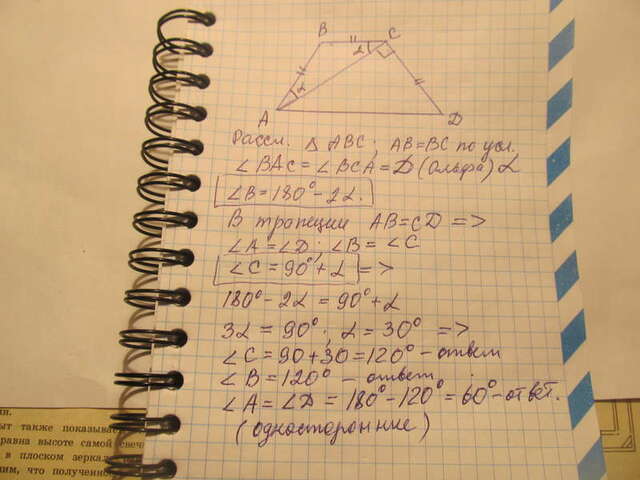 B C
α
α
A D
Рассм. △ ABC; AB=BC по усл.
∠BAC=∠BCA=D(альфа) α
∠B=180°-2α.
В трапеции AB=CD =>
∠A=∠D; ∠B=∠C
∠C=90°+α =>
180°-2α=90°+α
3α=90°; α=30° =>
∠C=90+30=120° - ответ
∠B=120° - ответ.
∠A=∠D=180°-120°=60° - ответ.
(односторонние)
ыт также показывае
равна высоте самой свеч
в плоском зеркал
ним, что полученно